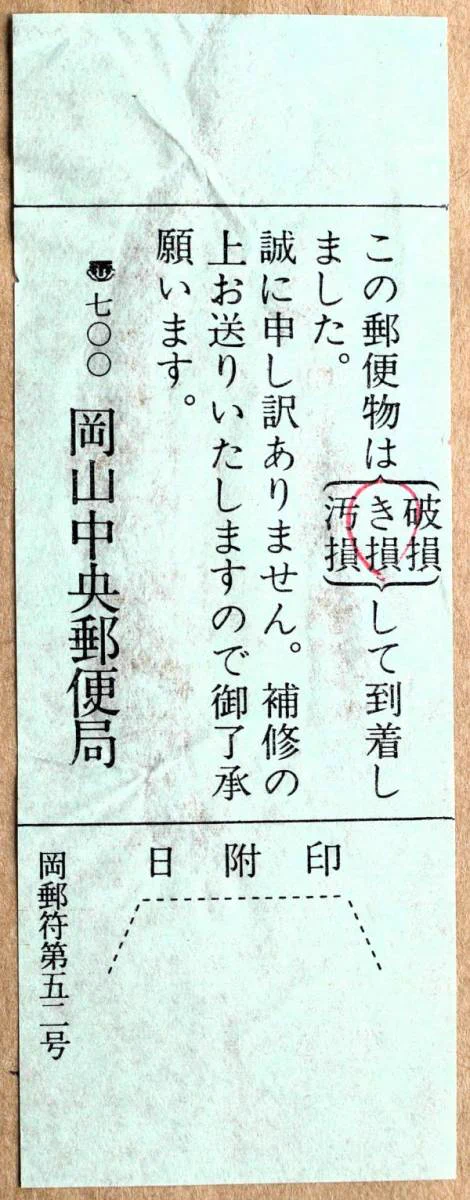 この郵便物は{破損 き損 汚損}して到着し
ました。
誠に申し訳ありません。補修の
上お送りいたしますので御了承
願います。
七〇〇 岡山中央郵便局
日附印
岡郵符第五二号